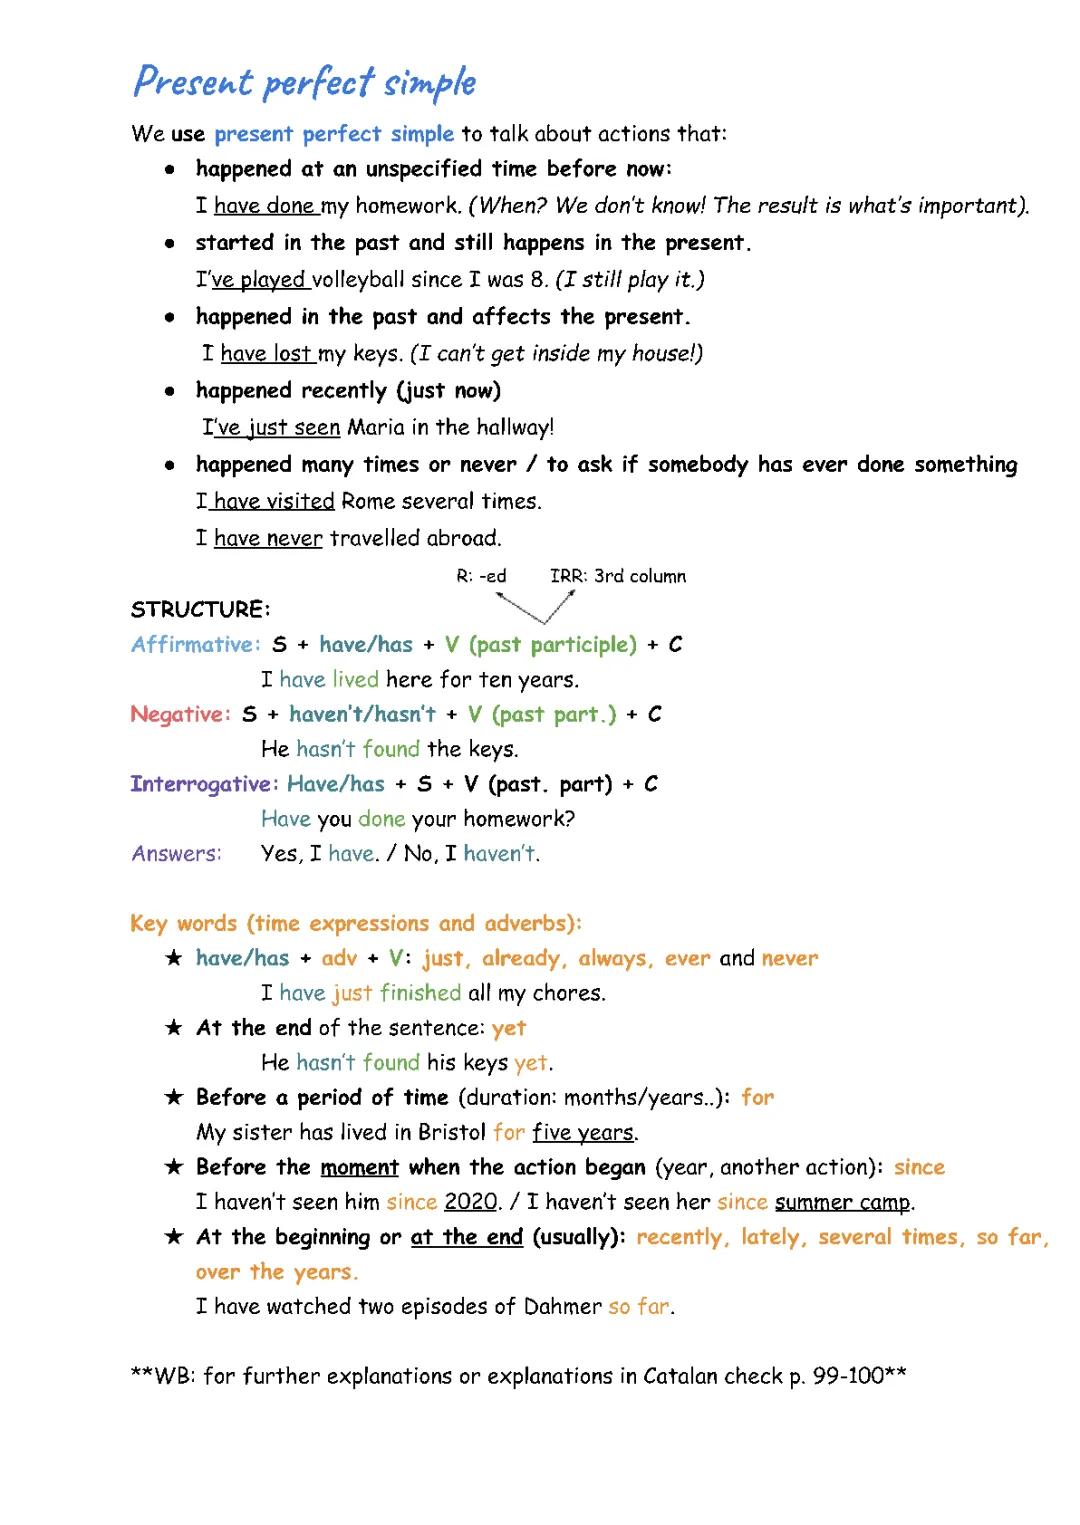 Present perfect simple
We use present perfect simple to talk about actions that:
● happened at an unspecified time before now:
I have done my homework. (When? We don't know! The result is what's important).
● started in the past and still happens in the present.
I've played volleyball since I was 8. (I still play it.)
● happened in the past and affects the present.
I have lost my keys. (I can't get inside my house!)
● happened recently (just now)
I've just seen Maria in the hallway!
● happened many times or never / to ask if somebody has ever done something
I have visited Rome several times.
I have never travelled abroad.
R: -ed IRR: 3rd column
STRUCTURE:
Affirmative: S + have/has + V (past participle) + C
I have lived here for ten years.
Negative: S + haven't/hasn't + V (past part.) + C
He hasn't found the keys.
Interrogative: Have/has + S + V (past. part) + C
Have you done your homework?
Answers: Yes, I have. / No, I haven't.
Key words (time expressions and adverbs):
★ have/has + adv + V: just, already, always, ever and never
I have just finished all my chores.
★ At the end of the sentence: yet
He hasn't found his keys yet.
★ Before a period of time (duration: months/years..): for
My sister has lived in Bristol for five years.
★ Before the moment when the action began (year, another action): since
I haven't seen him since 2020. / I haven't seen her since summer camp.
★ At the beginning or at the end (usually): recently, lately, several times, so far,
over the years.
I have watched two episodes of Dahmer so far.
**WB: for further explanations or explanations in Catalan check p. 99-100**